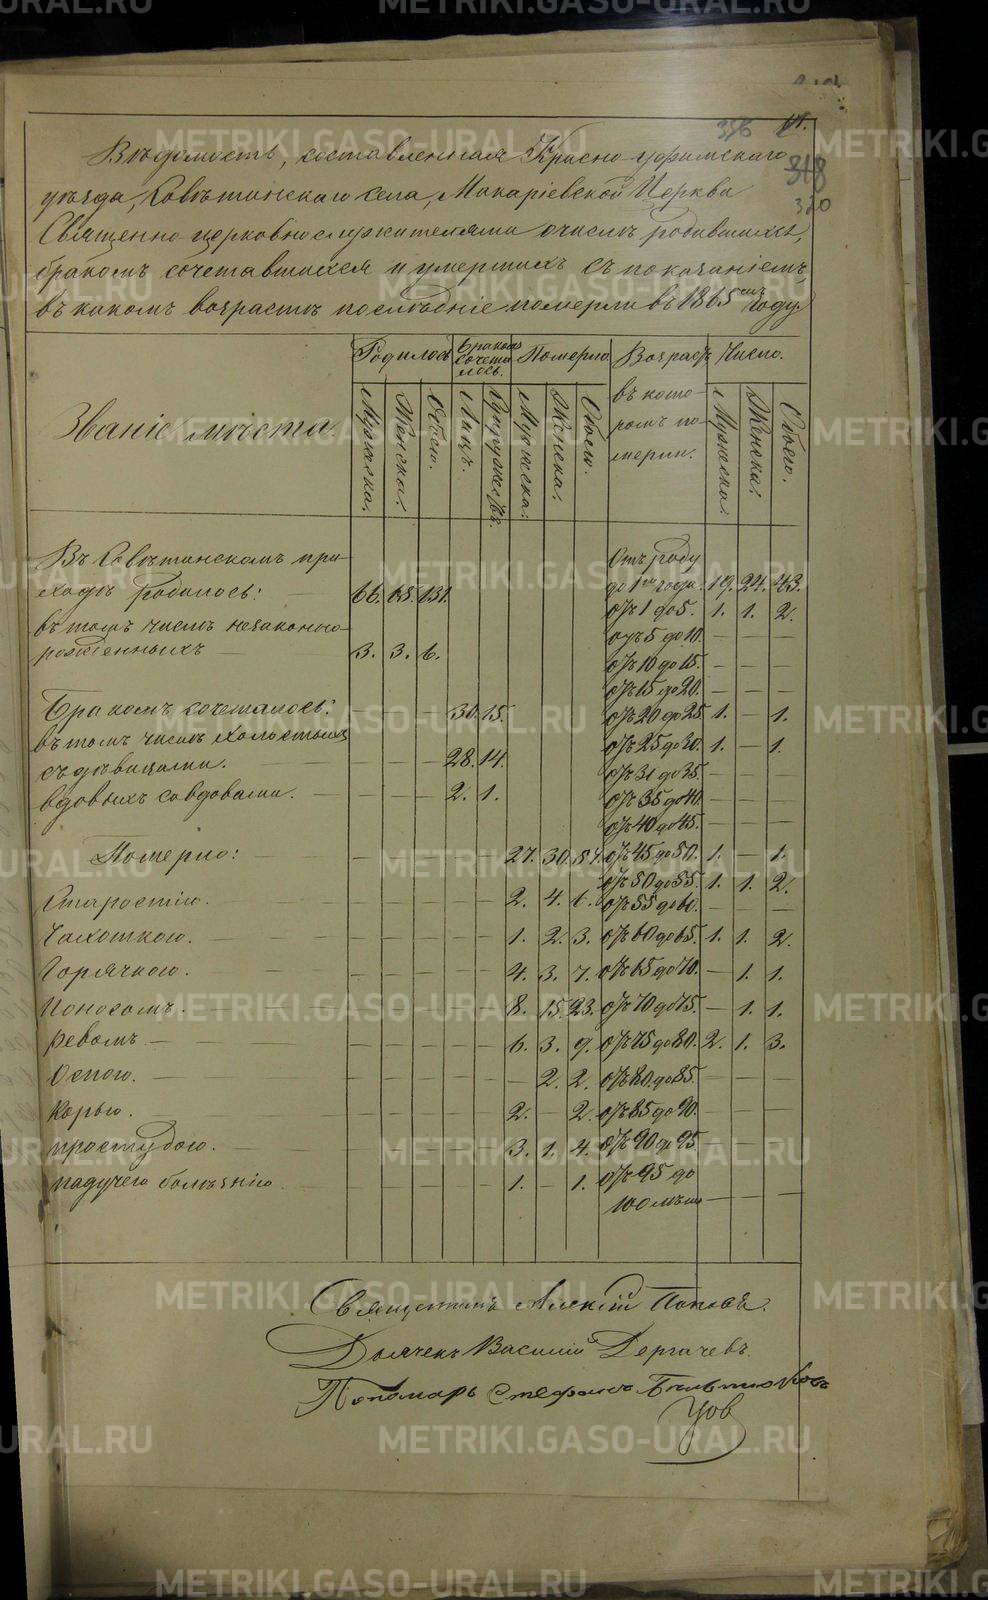 METRIKI.GASO-URAL.RU
356
318
320
Вѣдомость, составленная Красно-уфимскаго
уѣзда, Совѣтинскаго села, Макаріевской Церкви
Священно церковнослужителями о числѣ родившихся,
бракомъ сочетавшихся и умершихъ съ показаніемъ,
въ какомъ возрастѣ послѣдніе померли въ 1865 году
Званіе мѣста
Родилось
Бракомъ сочеталось.
Померло.
Возрастъ въ которомъ померли.
Число.
Мужеска. Женска. Обоего. Лицъ. Супружествъ. Мужеска. Женска. Обоего. Мужеска. Женска. Обоего.
Въ Совѣтинскомъ при-
ходѣ родилось: 66. 65. 131.
въ томъ числѣ незаконно-
рожденныхъ — 3. 3. 6.
Бракомъ сочеталось: — — — 30. 15.
въ томъ числѣ холостыхъ
съ дѣвицами. — — — — 28. 14.
вдовыхъ со вдовами. — — — — 2. 1.
Померло: — — — — — — 27. 30. 57.
Старостію. — — — — — 2. 4. 6.
Чахоткою. — — — — — — 1. 2. 3.
Горячкою. — — — — — 4. 3. 7.
Поносомъ. — — — — — 8. 15. 23.
Ревомъ. — — — — — — 6. 3. 9.
Оспою. — — — — — — — 2. 2.
Корью. — — — — — — 2. — 2.
простудою. — — — — — 3. 1. 4.
падучею болѣзнію. — — — — — 1. — 1.
Отъ роду
до 1го года. 19. 24. 43.
отъ 1 до 5. 1. 1. 2.
отъ 5 до 10. — — —
отъ 10 до 15. — — —
отъ 15 до 20. — — —
отъ 20 до 25 1. — 1.
отъ 25 до 30. 1. — 1.
отъ 31 до 35. — — —
отъ 35 до 40. — — —
отъ 40 до 45. — — —
отъ 45 до 50. 1. — 1.
отъ 50 до 55. 1. 1. 2.
отъ 55 до 60. — — —
отъ 60 до 65. 1. 1. 2.
отъ 65 до 70. — 1. 1.
отъ 70 до 75. — 1. 1.
отъ 75 до 80. 2. 1. 3.
отъ 80. до 85. — — —
отъ 85 до 90. — — —
отъ 90 до 95 — — —
отъ 95 до
100 лѣтъ — — —
Священникъ Алексій Поповъ.
Дьячекъ Василій Дергачевъ.
Пономарь Стефанъ